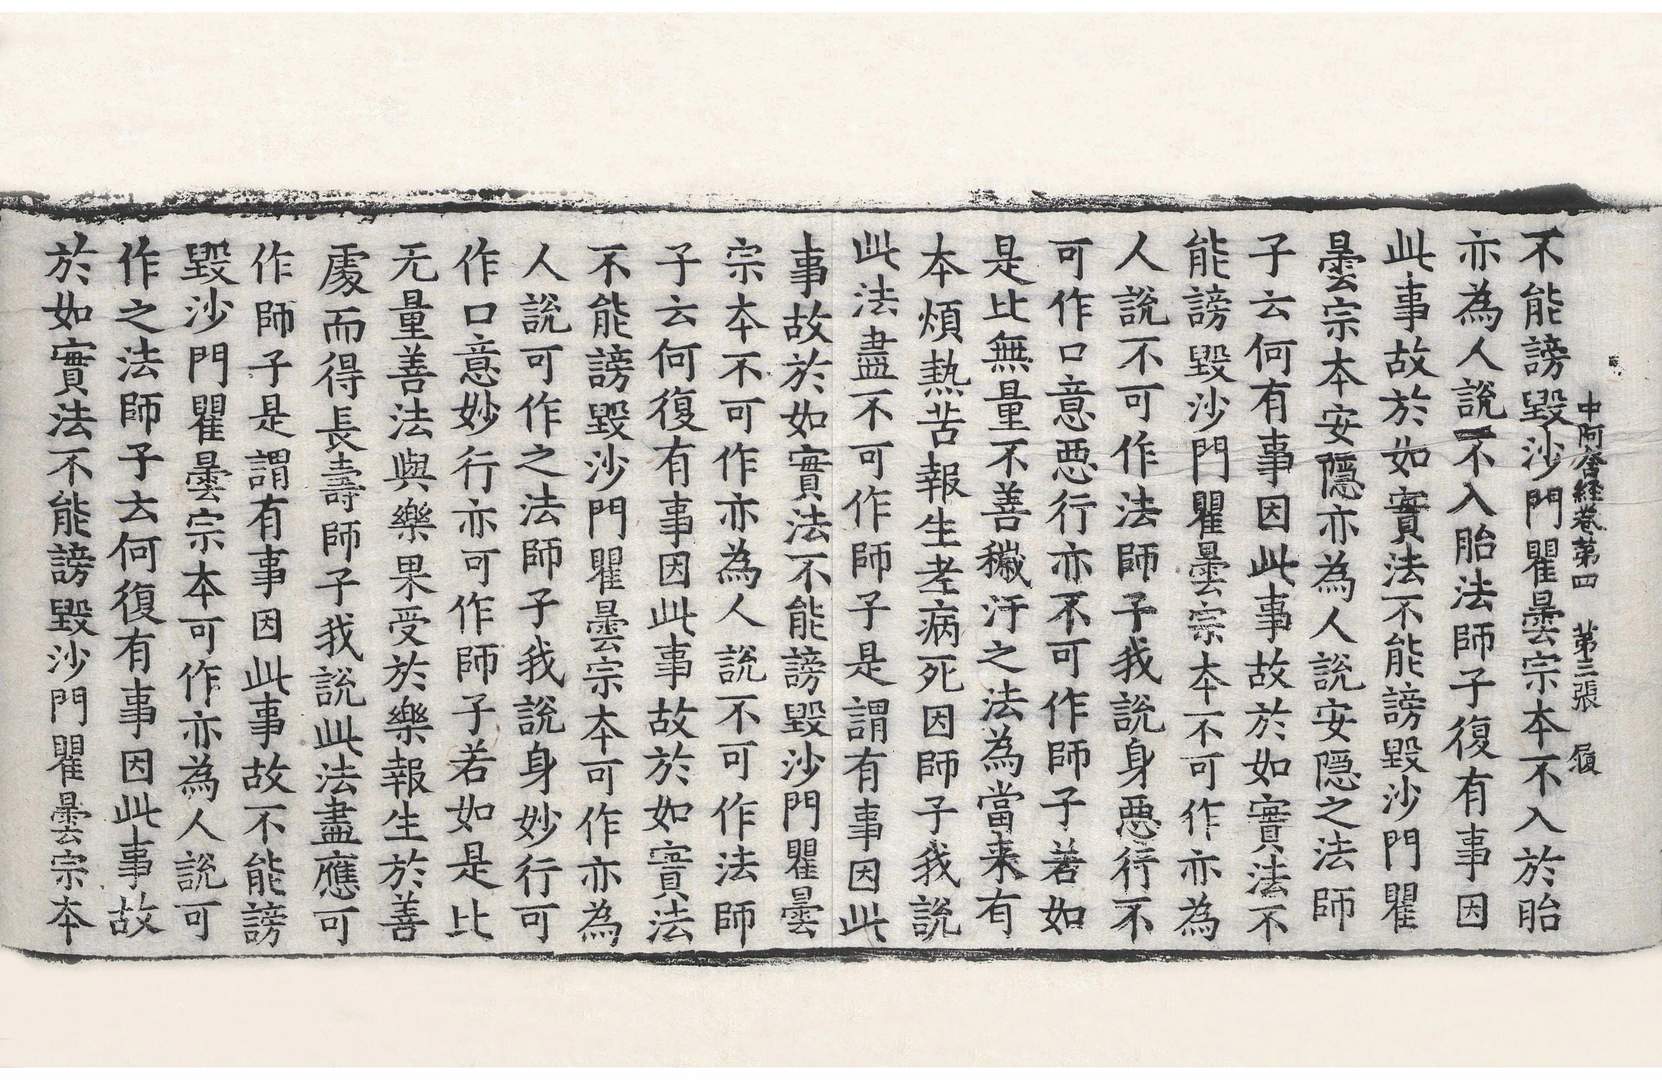 中阿含経卷第四 第三張 履
不能謗毀沙門瞿曇宗本不入於胎
亦為人說不入胎法師子復有事因
此事故於如實法不能謗毀沙門瞿
曇宗本安隱亦為人說安隱之法師
子云何有事因此事故於如實法不
能謗毀沙門瞿曇宗本不可作亦為
人說不可作法師子我說身惡行不
可作口意惡行亦不可作師子若如
是比無量不善穢汙之法為當来有
本煩熱苦報生老病死因師子我說
此法盡不可作師子是謂有事因此
事故於如實法不能謗毀沙門瞿曇
宗本不可作亦為人說不可作法師
子云何復有事因此事故於如實法
不能謗毀沙門瞿曇宗本可作亦為
人說可作之法師子我說身妙行可
作口意妙行亦可作師子若如是比
无量善法與樂果受於樂報生於善
處而得長壽師子我說此法盡應可
作師子是謂有事因此事故不能謗
毀沙門瞿曇宗本可作亦為人說可
作之法師子云何復有事因此事故
於如實法不能謗毀沙門瞿曇宗本